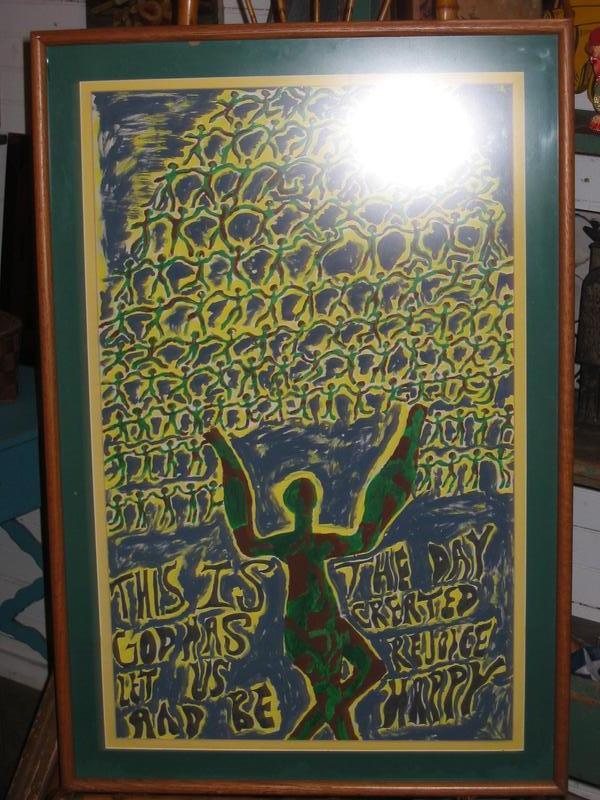 THIS IS THE DAY
GOD HAS CREATED
LET US REJOICE
AND BE HAPPY